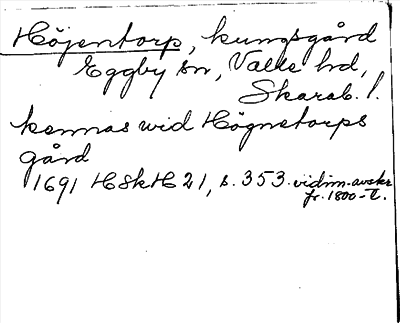 Höjentorp, kungsgård
Eggby sn, Valle hd,
Skarab. l.
kennas wid Högnetorps
gård
1691 HSkH 21, s. 353. vidim. avskr.
fr. 1800-t.